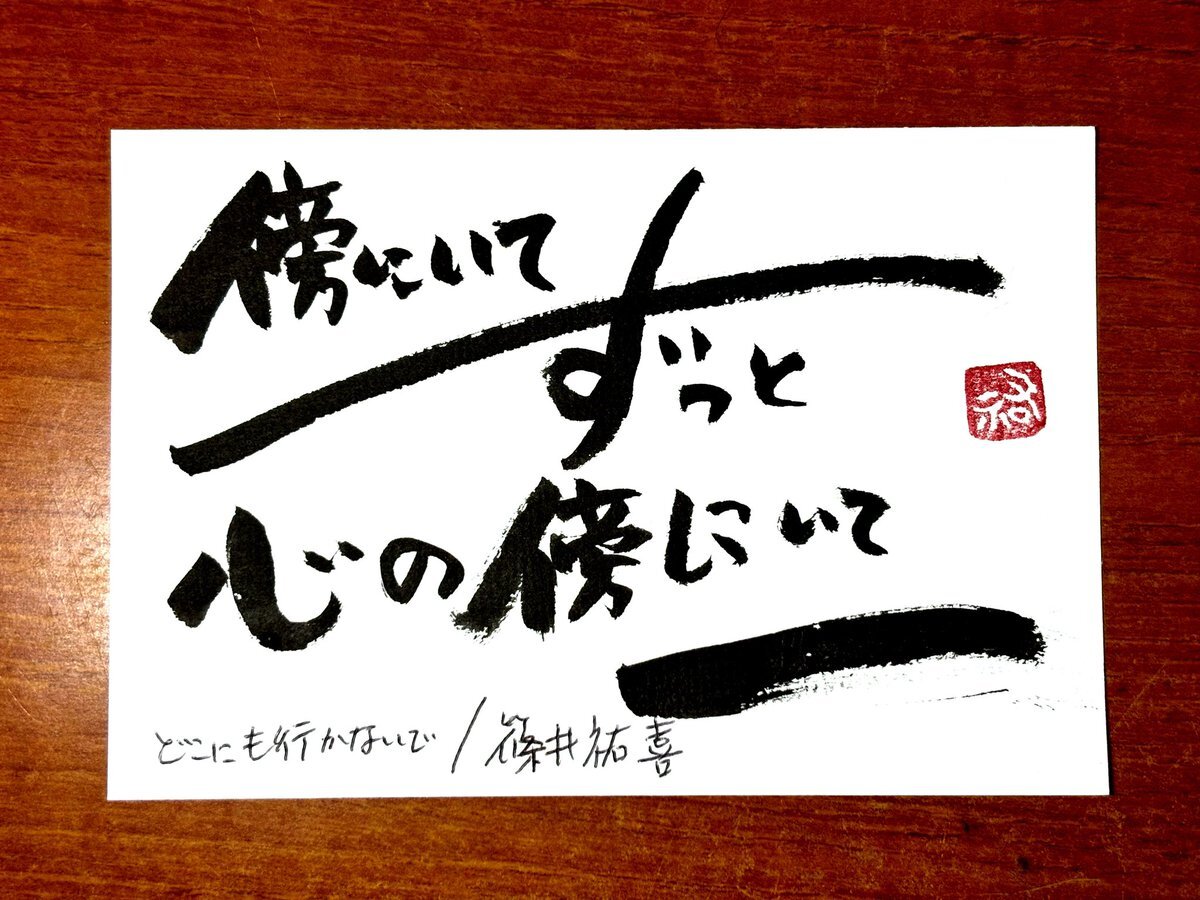 傍にいて
ずっと
心の傍にいて
どこにも行かないで/篠井祐喜
祐